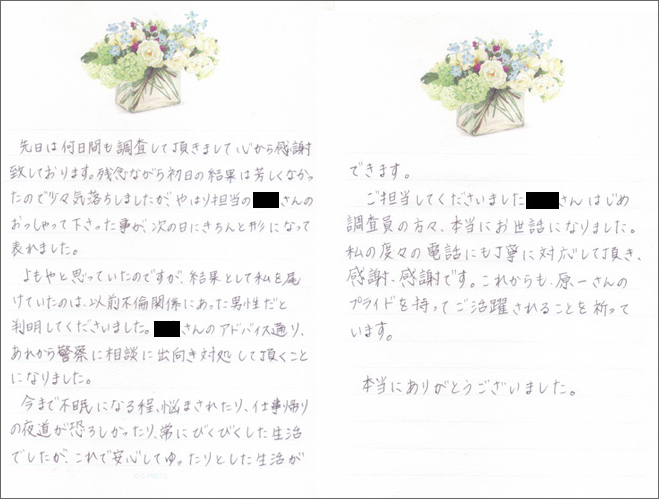 先日は何日間も調査して頂きまして心から感謝
致しております。残念ながら初日の結果は芳しくなかっ
たので少々気落ちしましたが、やはり担当の
さんの
おっしゃって下さった事が、次の日にきちんと形になって
表れました。
よもやと思っていたのですが、結果として私を尾
けていたのは、以前不倫関係にあった男性だと
判明してくださいました。
さんのアドバイス通り、
あれから警察に相談に出向き対処して頂くこと
になりました。
今まで不眠になる程、悩まされたり、仕事帰り
の夜道が恐ろしかったり、常にびくびくした生活
でしたが、これで安心してゆったりとした生活が
できます。
ご担当してくださいました
さんはじめ
調査員の方々、本当にお世話になりました。
私の度々の電話にも丁寧に対応して頂き、
感謝、感謝です。これからも、原一さんの
プライドを持ってご活躍されることを祈って
います。
本当にありがとうございました。